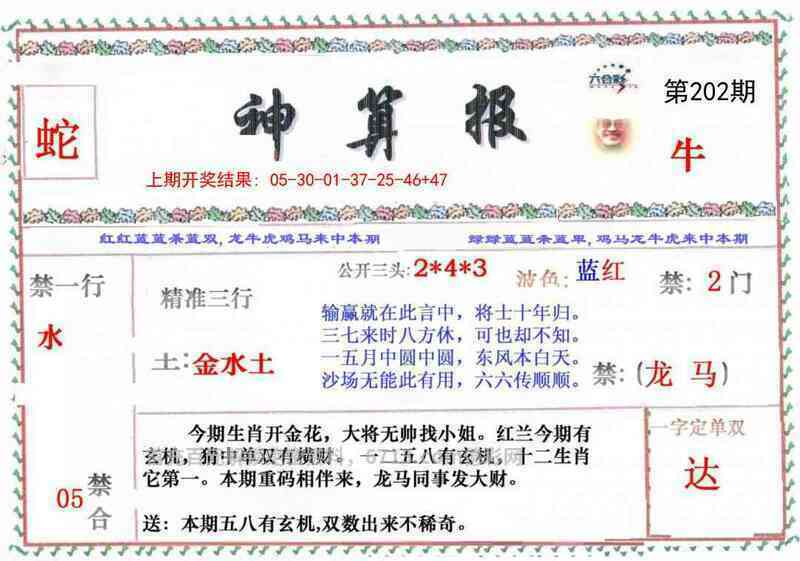 六合彩
第202期
蛇
神算报
牛
上期开奖结果：05-30-01-37-25-46+47
红红蓝蓝杀蓝双,龙牛虎鸡马来中本期
绿绿蓝蓝杀蓝单,鸡马龙牛虎来中本期
公开三头:2*4*3
波色:蓝红
禁:2门
禁一行
水
精准三行
土:金水土
输赢就在此言中，将士十年归。
三七来时八方休，可也却不知。
一五月中圆中圆，东风本白天。
沙场无能此有用，六六传顺顺。
禁:(龙 马)
今期生肖开金花，大将无帅找小姐。红兰今期有
玄机，猜中单双有横财。一二五八有玄机，十二生肖
它第一。本期重码相伴来，龙马同事发大财。
送：本期五八有玄机,双数出来不稀奇。
05
禁合
一字定单双
达